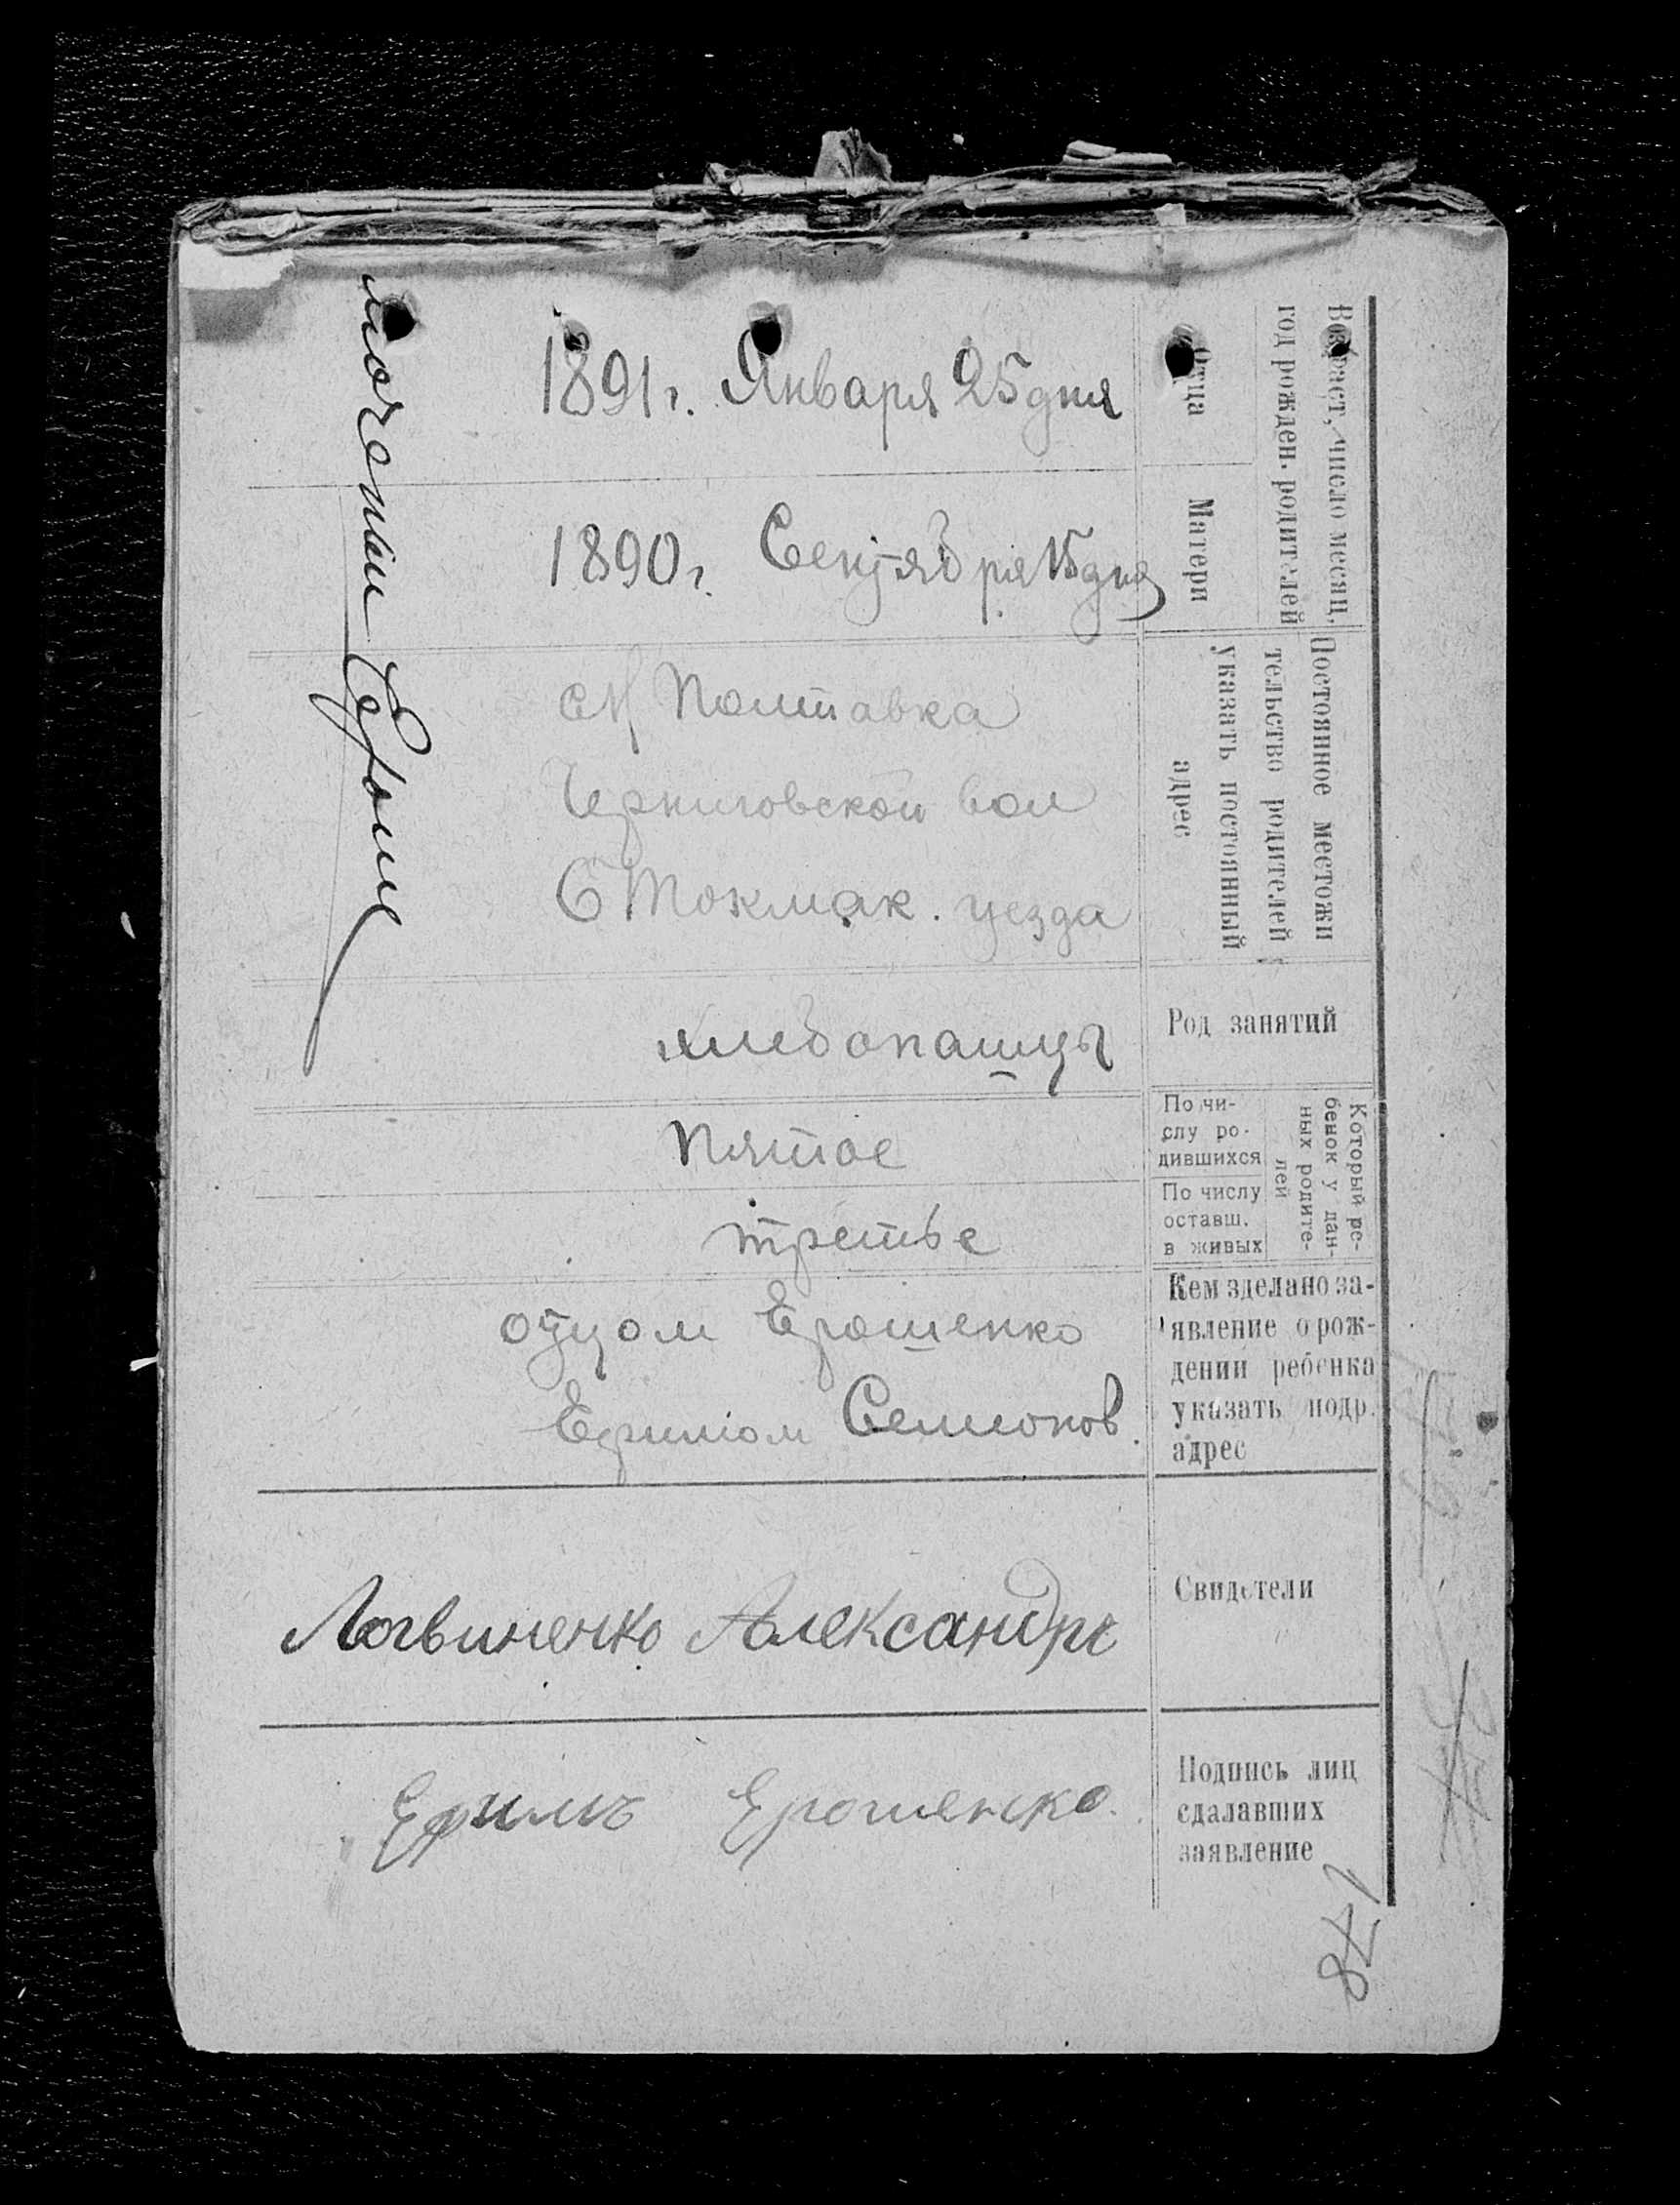 Возраст, число месяц,
год рожден. родителей
Отца
1891 г. Января 25 дня
Матери
1890 г. Сентября 15 дня
Постоянное местожи
тельство родителей
указать постоянный
адрес
Полтавка
Черниговской вол
Б Токмак. уезда
Род занятий
хлебопашцы
Который ре-
бенок у дан-
ных родите-
лей
По чи-
слу ро-
дившихся
Пятое
По числу
оставш.
в живых
третье
Кем зделано за-
явление о рож-
дении ребенка
указать подр.
адрес
отцом Ерошенко
Ефимом Семионов.
Свидетели
Логвиненко Александръ
Подпись лиц
сдалавших
заявление
Ефимъ Ерошенко.
178